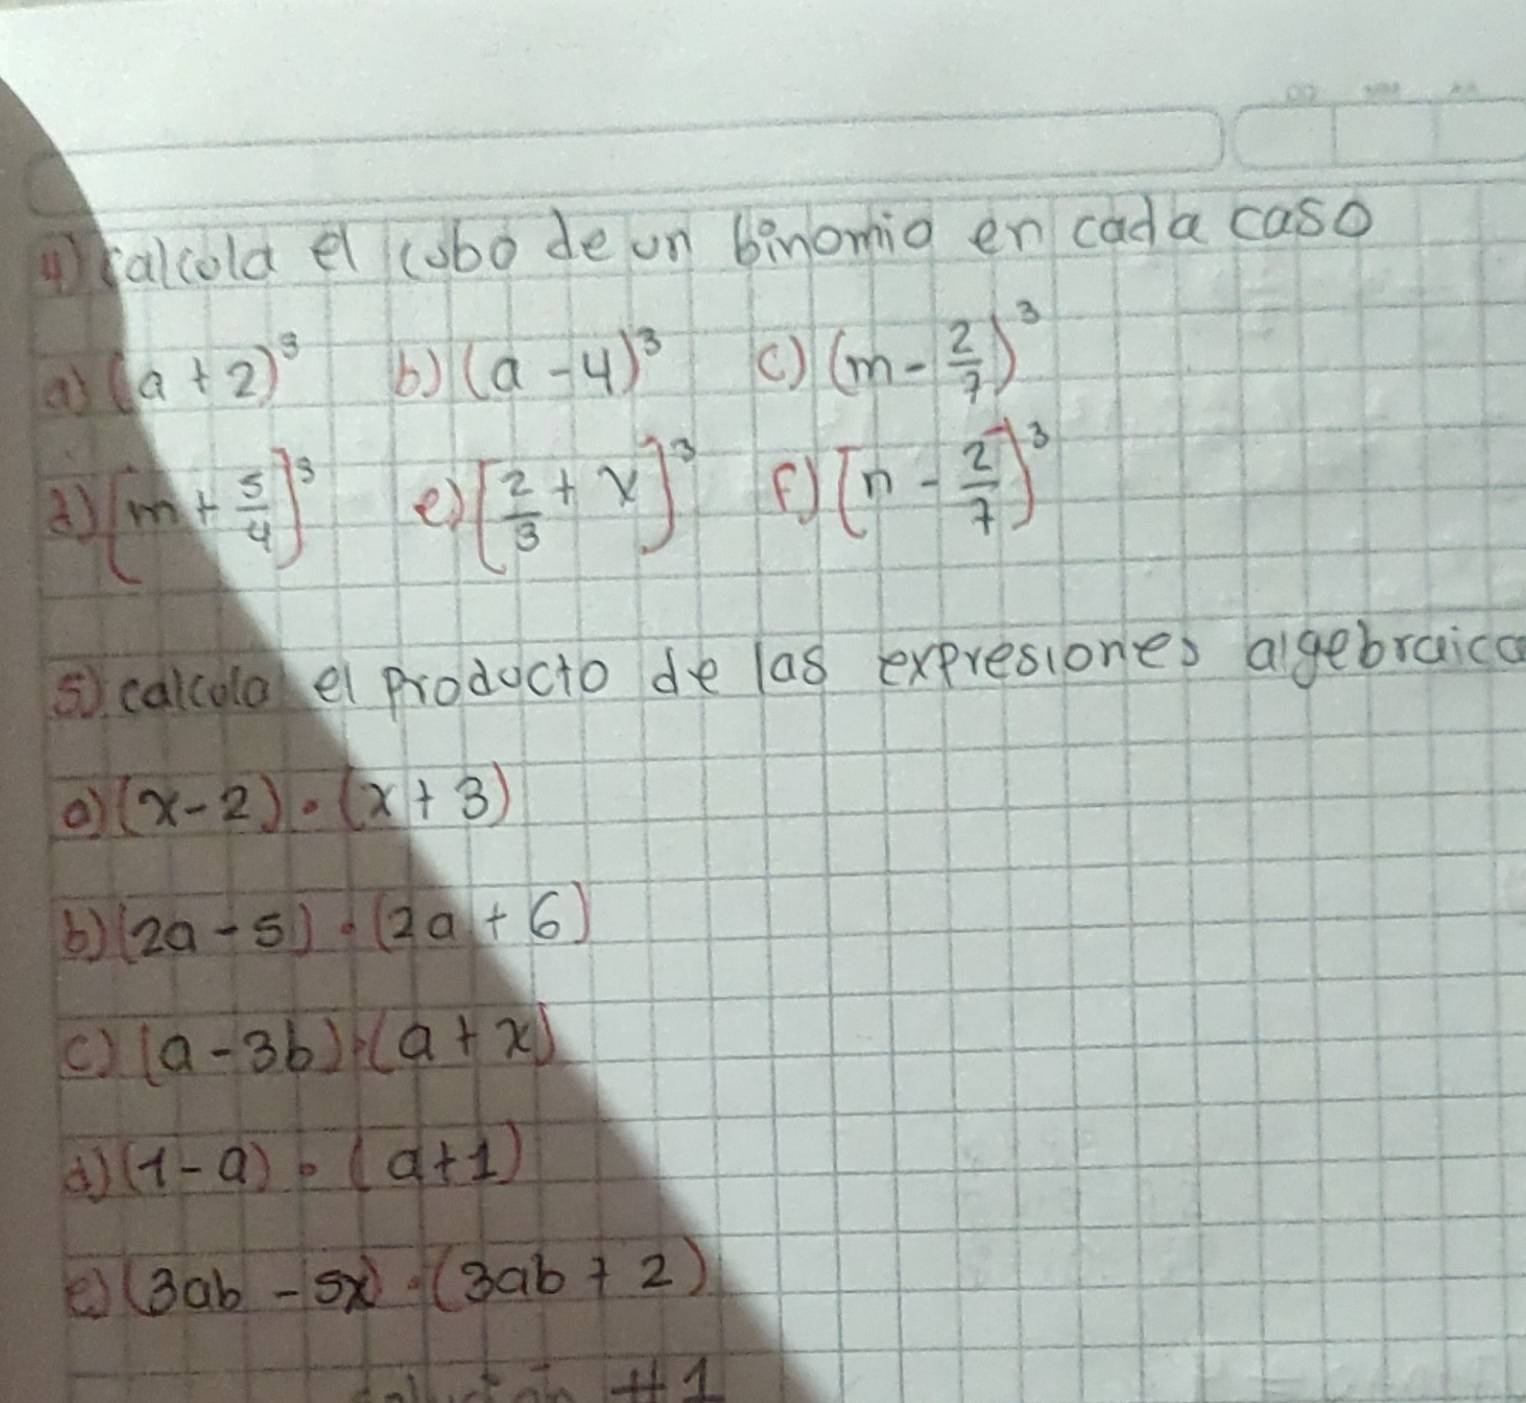 DD MM AA
4) calcula el cubo de un binomio en cada caso
a) (a + 2)³ b) (a - 4)³ c) (m - 2/7)³
d) [m + 5/4]³ e) [2/3 + x]³ F) [n - 2/7]³
5). calcula el producto de las expresiones algebraica
a) (x - 2) · (x + 3)
b) (2a - 5) · (2a + 6)
c) (a - 3b) · (a + x)
d) (1 - a) · (a + 1)
e) (3ab - 5x) · (3ab + 2)
solución #1